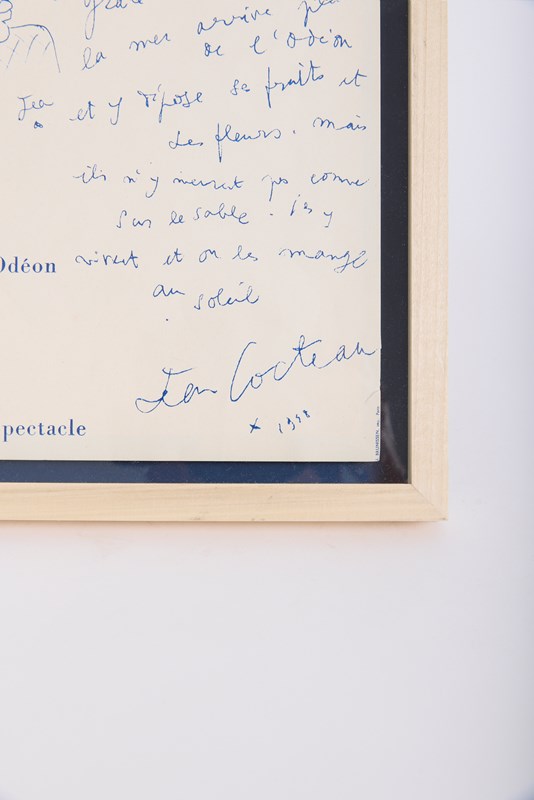 Grâce
la mer arrive
de l'Odéon
Jean
et y dépose ses fruits et
des fleurs. mais
ils n'y meurent pas comme
sur le sable. ils y
vivent et on les mange
au soleil
Odéon
Jean Cocteau
1958
pectacle